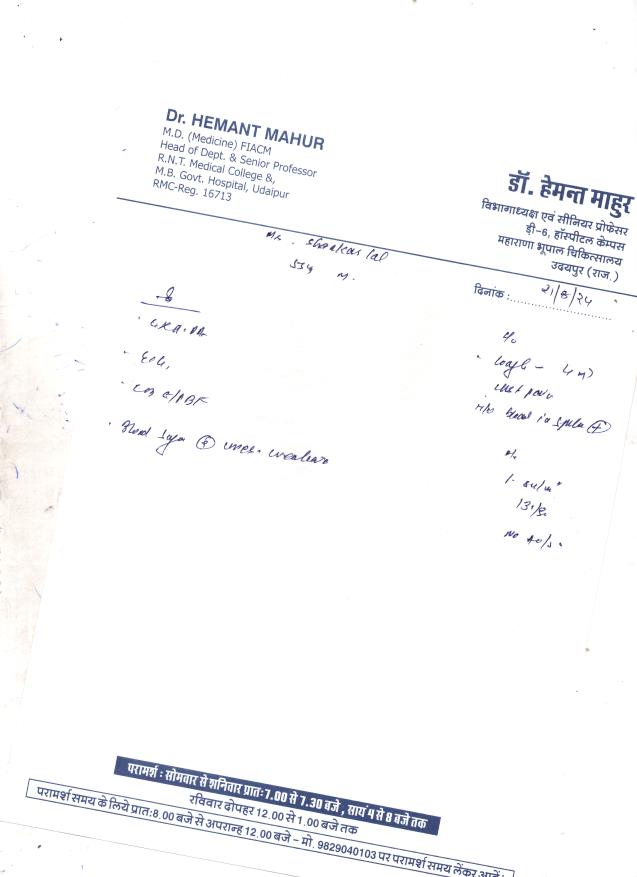 Dr. HEMANT MAHUR
M.D. (Medicine) FIACM
Head of Dept. & Senior Professor
R.N.T. Medical College &,
M.B. Govt. Hospital, Udaipur
RMC-Reg. 16713
डॉ. हेमन्त माहुर
विभागाध्यक्ष एवं सीनियर प्रोफेसर
डी-6, हॉस्पीटल केम्पस
महाराणा भूपाल चिकित्सालय
उदयपुर (राज.)
दिनांक : 21/8/24
Mr. Shankar lal
55y M.
C/o
Cough -
chest pain
H/o Blood in Sputum +
ECG,
CBC/PBF
Blood Sugar +
130/80
परामर्श : सोमवार से शनिवार प्रातः7.00 से 7.30 बजे, सायं 4 से 8 बजे तक
रविवार दोपहर 12.00 से 1.00 बजे तक
परामर्श समय के लिये प्रात:8.00 बजे से अपरान्ह 12.00 बजे - मो. 9829040103 पर परामर्श समय लेंकर आवें।